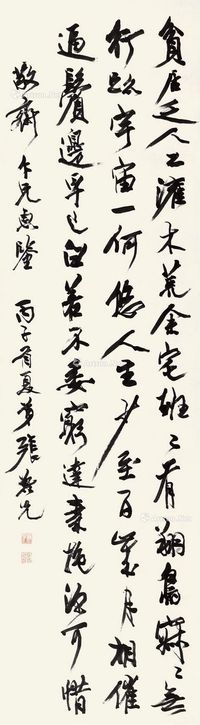 貧居乏人工灌木荒余宅班〻有翔鳥寂〻無
行跡宇宙一何悠人生少至百歲月相催
逼鬢邊早已白若不委窮達素抱深可惜
敬齋仁兄惠鑒 丙子首夏弟張元